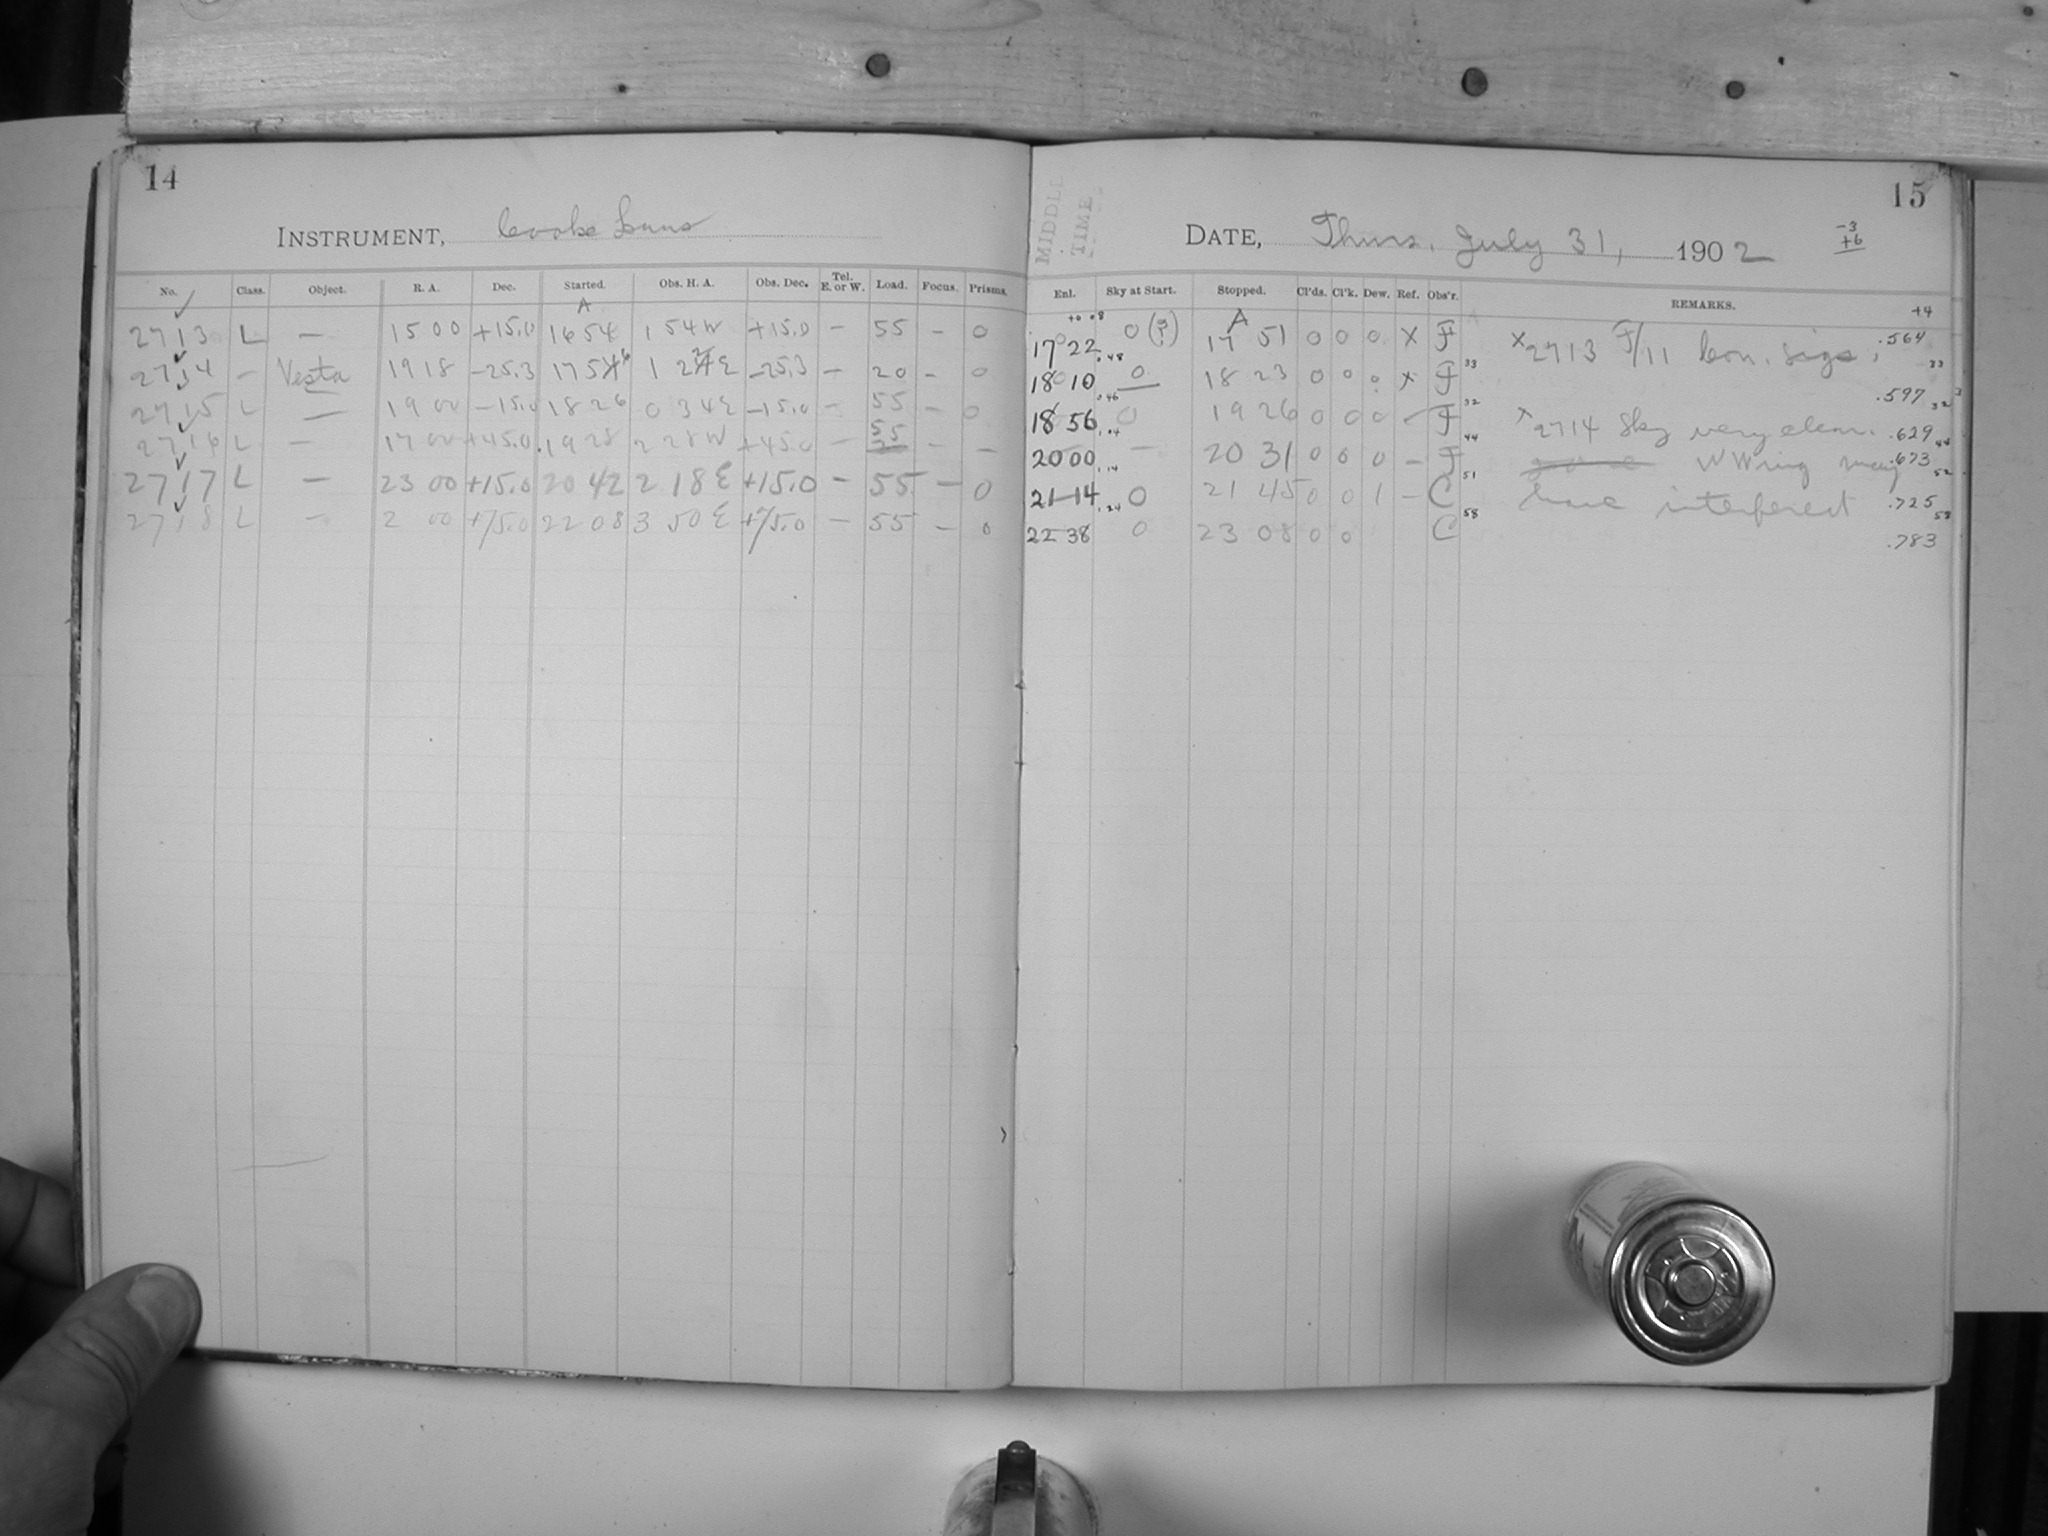 14
INSTRUMENT, Cooke Lens
No. Class. Object. R. A. Dec. Started. Obs. H. A. Obs. Dec. Tel. E. or W. Load. Focus. Prisms.
A
2713 L — 15 00 +15.0 16 54 1 54 W +15.0 — 55 — 0
2714 — Vesta 19 18 −25.3 17 56 1 22 E −25.3 — 20 — 0
2715 L — 19 00 −15.0 18 26 0 34 E −15.0 — 55 — 0
2716 L — 17 00 +45.0 19 28 2 28 W +45.0 — 55 — —
2717 L — 23 00 +15.0 20 42 2 18 E +15.0 — 55 — 0
2718 L — 2 00 +75.0 22 08 3 50 E +75.0 — 55 — 0
15
MIDDLE TIME
DATE, Thurs. July 31, 1902
−3
+6
Enl. Sky at Start. Stopped. Cl'ds. Cl'k. Dew. Ref. Obs'r. REMARKS.
+4
A
17 22 0 (?) 17 51 0 0 0 X F X 2713 F/11 Con. sigs, .564
.48 33 33
18 10 0 18 23 0 0 0 X F .597
.46 32 32
18 56 0 19 26 0 0 0 — F X 2714 Sky very clear. .629
.04 44 44
20 00 — 20 31 0 0 0 — F W Wing may .673
.14 51 52
21 14 0 21 45 0 0 1 — C have interfered .725
.24 58 58
22 38 0 23 08 0 0 C .783